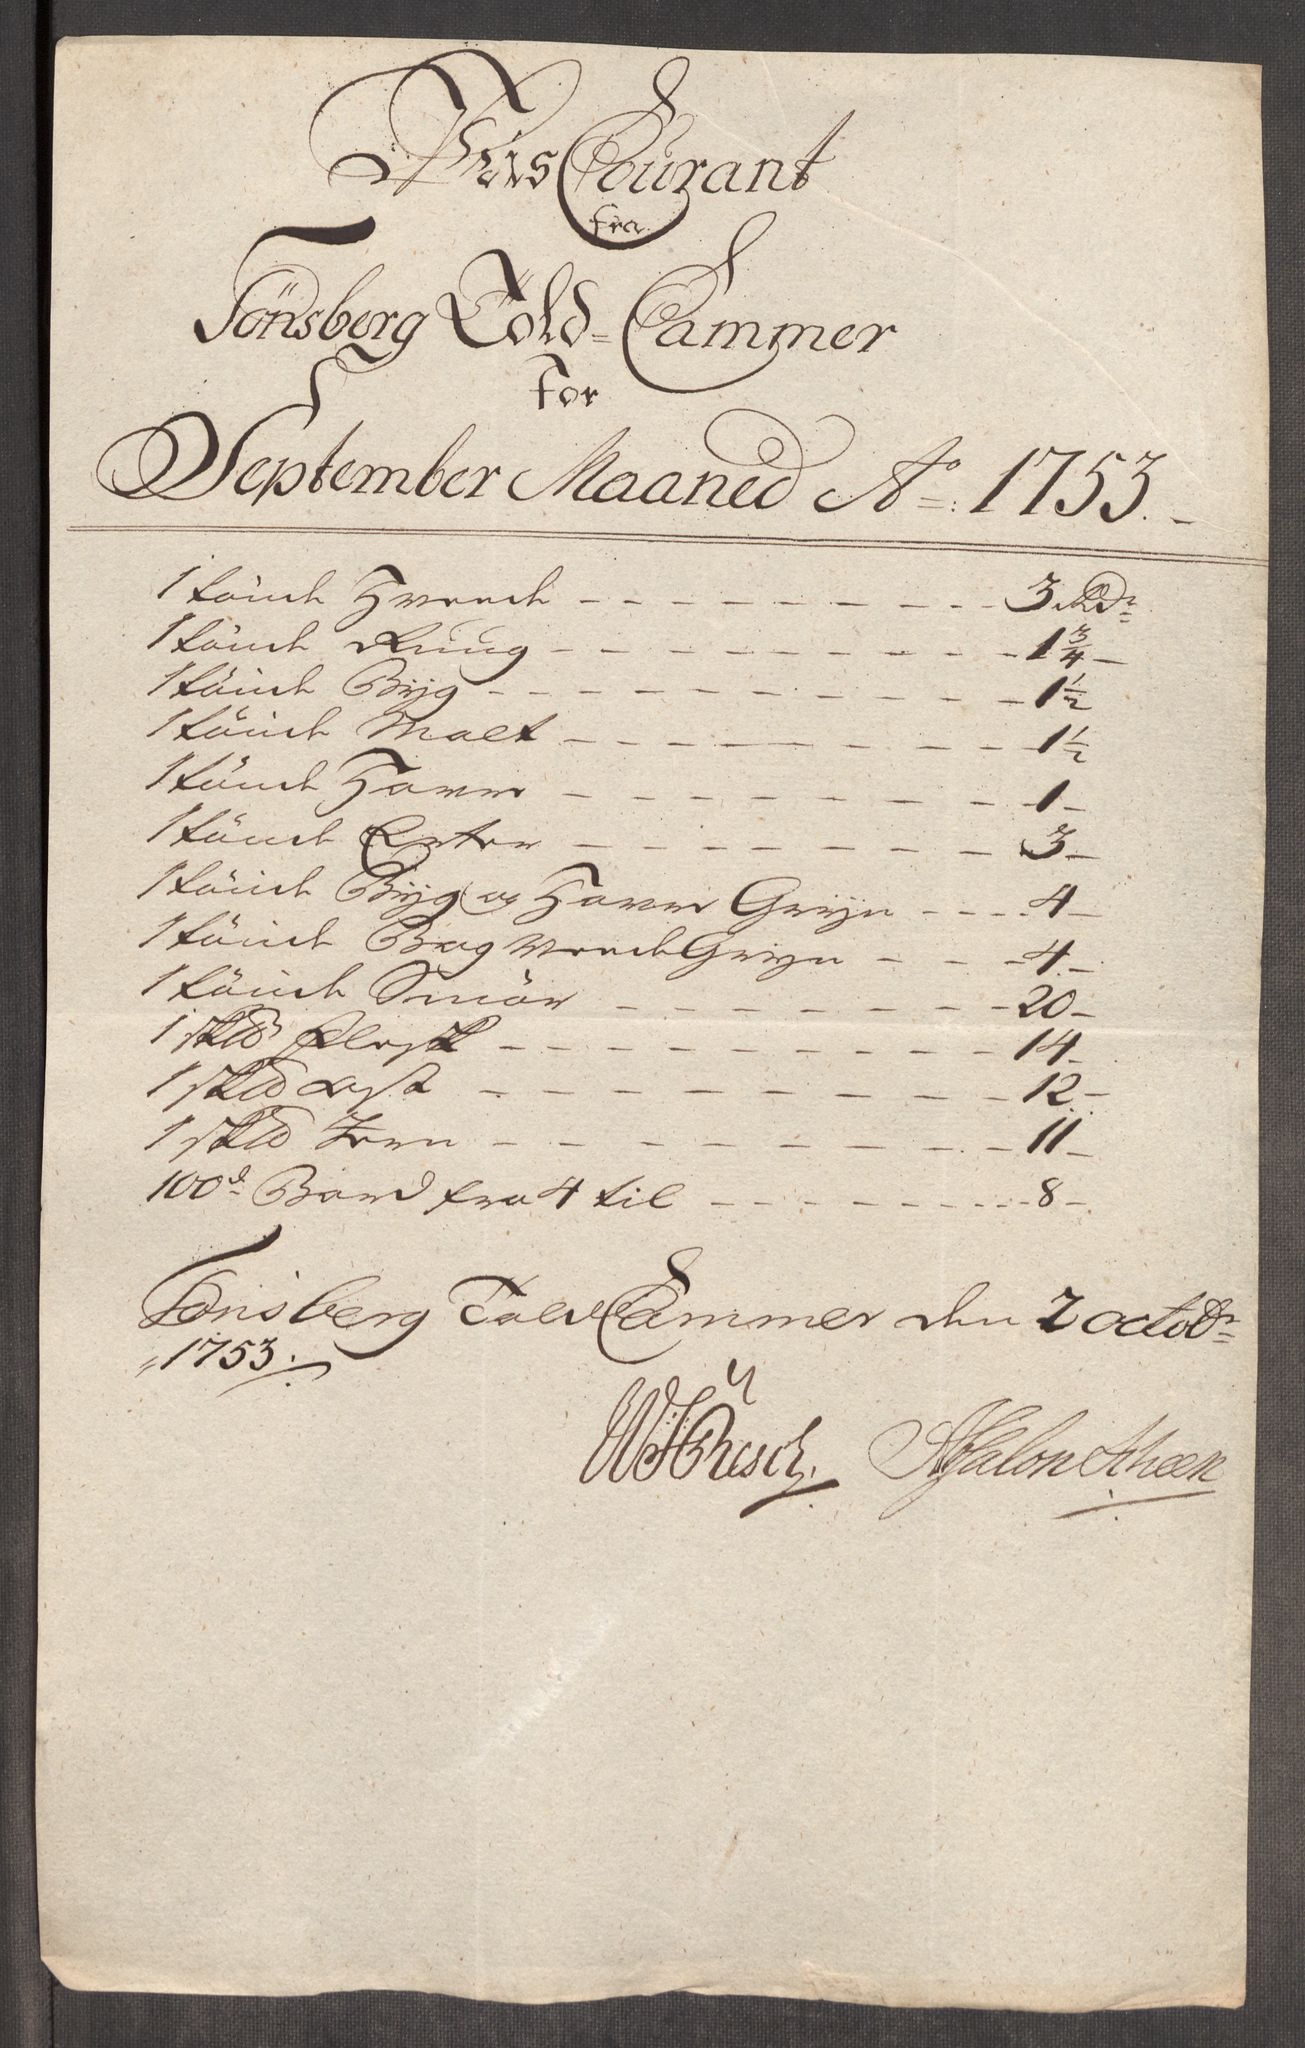 Priis Courant
fra
Tönsberg Told-Cammer
for
September Maaned Ao: 1753.
1 tönde Hveede - - - 3 Rdr
1 tönde Rüug - - - 1 3/4 -
1 tönde Bÿg - - - 1 1/2
1 tönde Malt - - - 1 1/2
1 tönde Haver - - - 1 -
1 tönde Erter - - - 3 -
1 tönde Bÿg og Haver Grÿn - - - 4 -
1 tönde Bog Hveede Grÿn - - - 4 -
1 tönde Smör - - - 20 -
1 sk℔ Flesk - - - 14 -
1 sk℔ Ost - - - 12 -
1 sk℔ Jern - - - 11 -
100d Bord fra 4 til - - - 8 -
Tönsberg Told Cammer den 2 octobr
1753.
Absalon Scheen